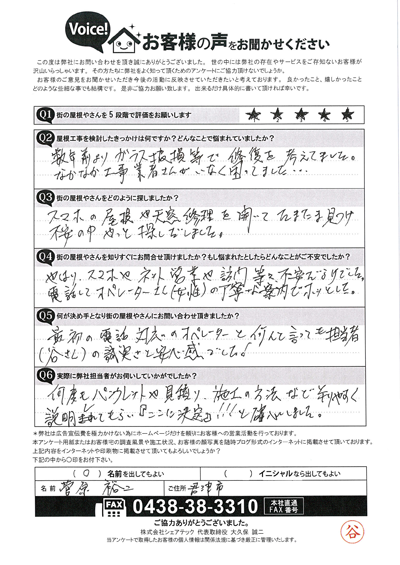 Voice!
お客様の声をお聞かせください
この度は弊社にお問い合わせを頂き誠にありがとうございました。世の中には弊社の存在やサービスをご存知ないお客様が
沢山いらっしゃいます。その方たちに弊社をよく知って頂くためのアンケートにご協力頂けないでしょうか。
お客様のご意見をお聞かせいただき今後の活動に反映させていただきたいと考えております。良かったこと、嬉しかったこと
どのような些細な事でも結構です。是非ご協力お願い致します。出来るだけ具体的に書いて頂ければ幸いです。
Q1 街の屋根やさんを5段階で評価をお願いします
★ ★ ★ ★ ★
Q2 屋根工事を検討したきっかけは何ですか?どんなことで悩まれていましたか?
数年前より ガラス破損等で 修復を 考えてました。
なかなか工事業者さんがいなく困ってました…
Q3 街の屋根やさんをどのように探しましたか?
スマホの屋根や天窓修理を開いて たまたま見つけ
不安の中 やっと探しだしました。
Q4 街の屋根やさんを知りすぐにお問合せ頂けましたか?もし悩まれたとしたらどんなことがご不安でしたか?
やはり、スマホや ネット 営業や訪問 等々 不安
電話して オペレーターさん(女性)の丁寧な案内でホッとした。
Q5 何が決め手となり街の屋根やさんにお問い合わせ頂きましたか?
最初の電話対応のオペレーターと 何んと言っても担当者
(谷さん)の誠実さと安心感でした!
Q6 実際に弊社担当者がお伺いしていかがでしたか?
何度もパンフレットや見積り、施工の方法など 解りやすく
説明されてもらい『ここに決定‼!と確心しました。
※弊社は広告宣伝費を極力かけない為にホームページだけを頼りにお客様への営業活動を行っております。
本アンケート用紙またはお客様宅の調査風景や施工状況、お客様の顔写真を随時ブログ形式のインターネットに掲載させて頂いております。
上記内容をインターネットや印刷物に掲載させて頂いてもよろしいでしょうか?
下記の中から〇印をお付下さい。
( 〇 ) 名前を出してもよい
( ) イニシャルなら出してもよい
名前 菅原 裕二 ご住所 君津市
FAX 0438-38-3310 本社直通 FAX番号
ご協力ありがとうございました。
株式会社シェアテック 代表取締役 大久保 誠二
当アンケートで取得したお客様の個人情報は関係法規に基づき厳正に管理いたします。
谷